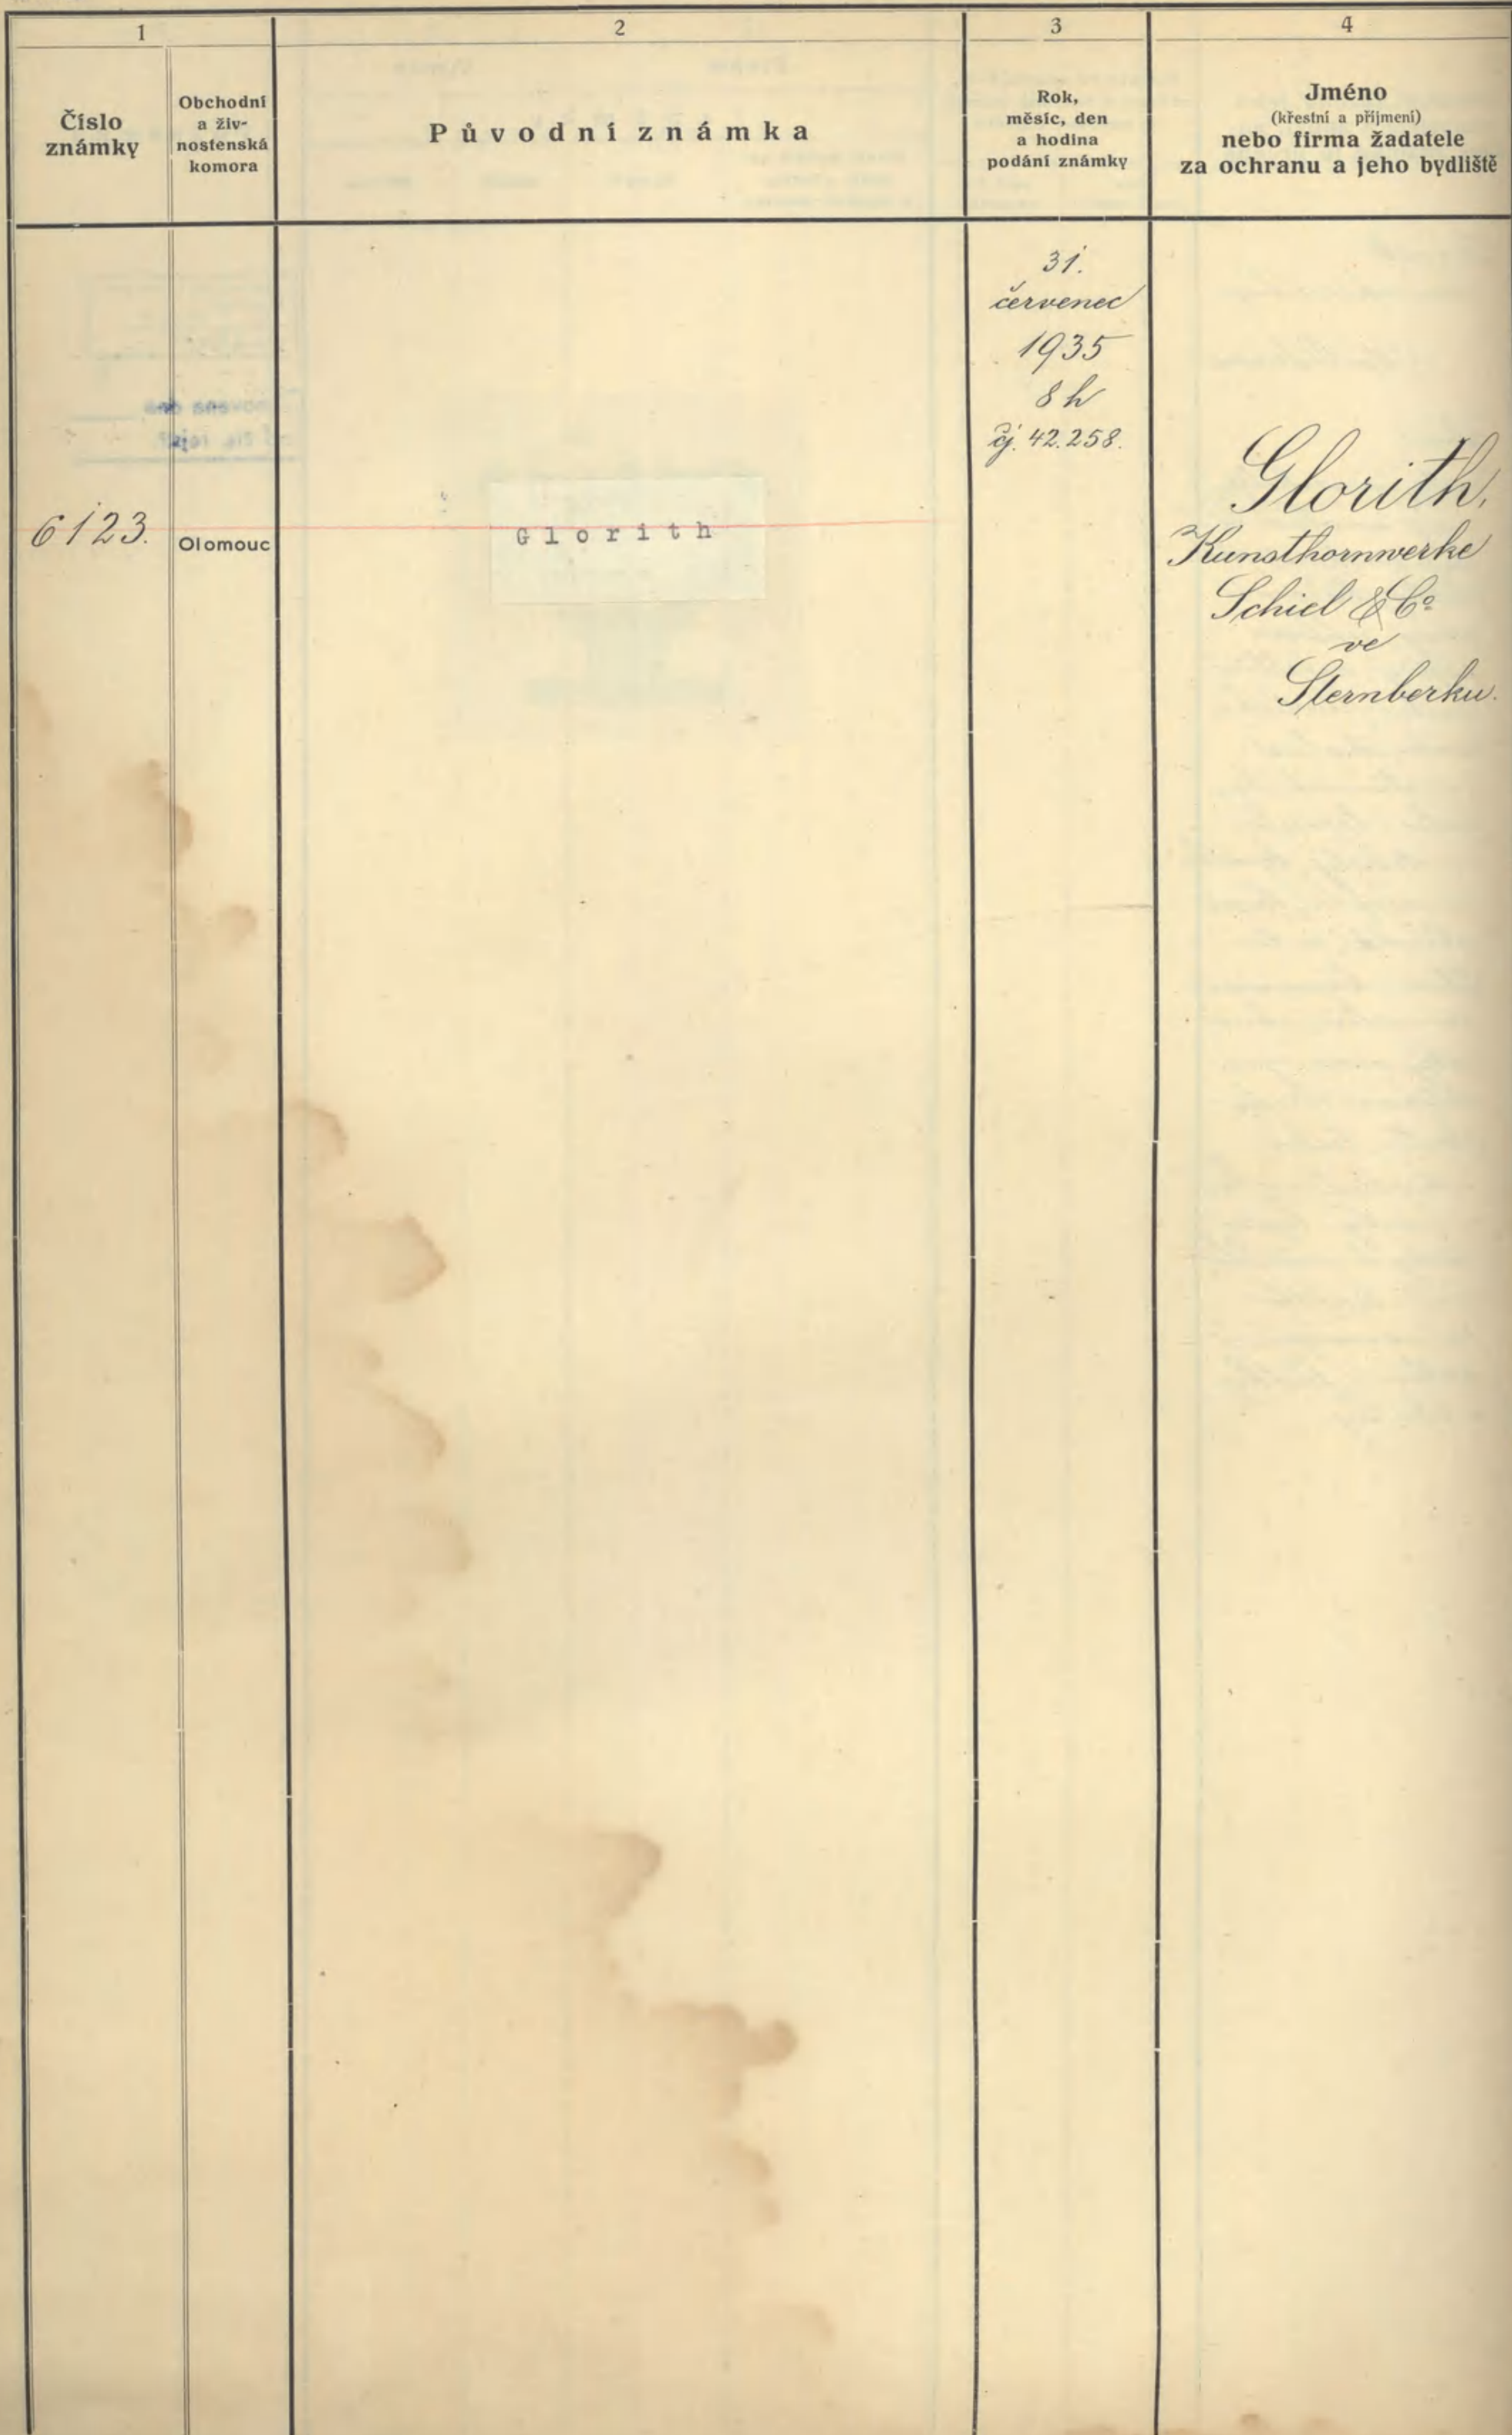 1
2
3
4
Číslo
známky
Obchodní
a živ-
nostenská
komora
Původní známka
Rok,
měsíc, den
a hodina
podání známky
Jméno
(křestní a příjmení)
nebo firma žadatele
za ochranu a jeho bydliště
31.
červenec
1935
8 h
čj. 42.258.
6123.
Olomouc
Glorith
Glorith,
Kunsthornwerke
Schiel & Co
ve
Šternberku.